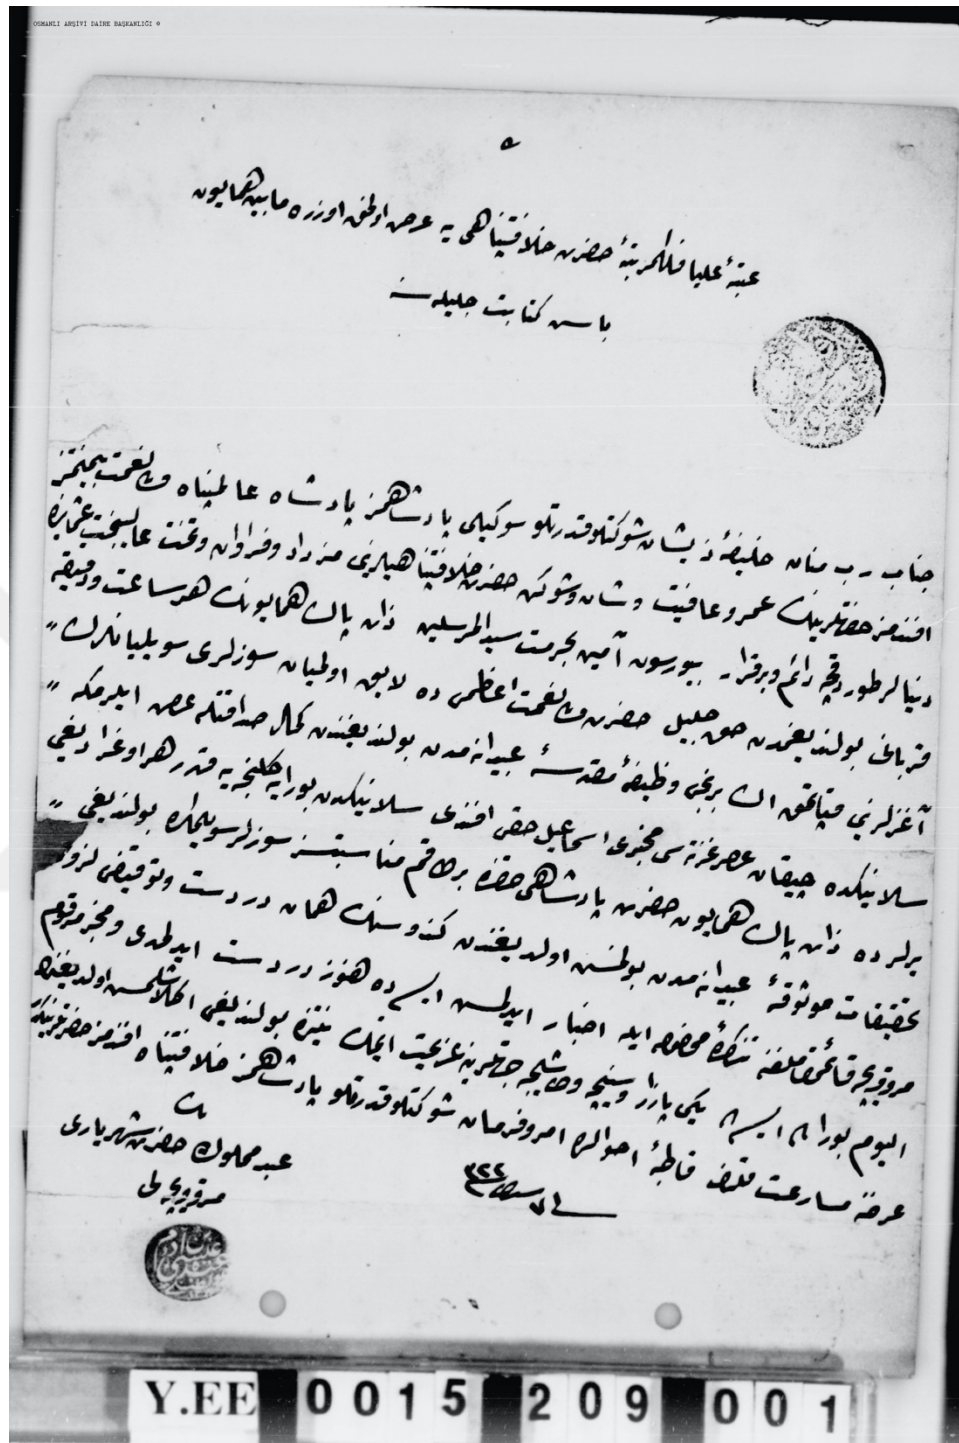 OSMANLI ARŞİVİ DAİRE BAŞKANLIĞI ©
عتبهٔ علیا فلکمرتبهٔ حضرت خلافتپناهی یه عرض اولنمق اوزره مابین همایون
باش کتابت جلیله سنه
جناب رب منان خلیفهٔ ذیشان شوکتلو قدرتلو سوکیلی پادشاهمز پادشاه عالمپناه ولینعمت بیمنتمز
افندمز حضرتلرینك عمر وعافیت وشان وشوکت حضرت خلافتپناهیلرینی مزداد وفراوان وتخت عالیبخت عثمانیده
دنیالر طوردقجه دائم وبرقرار بیورسون آمین بحرمت سید المرسلین ذات پاك همایونك هر ساعت ودقیقه
قربانی بولندیغمدن حق جلیل حضرت ولینعمت اعظمی ده لایق اولمیان سوزلری سویلیانلرك
آغزلرینی قپاتمق اك برنجی وظیفهٔ مقدسهٔ عبیدانه مدن بولندیغندن کمال صداقتله عرض ایدرمکه
سلانیکده چیقان عصر غزته سی مخبری اسماعیل حقی افندی سلانیکدن بورایه کلنجیه قدر هر اوغرادیغی
یرلرده ذات پاك همایون حضرت پادشاهی حقنده بر طاقم مناسبتسز سوزلر سویلمکده بولندیغی
تحقیقات موثوقهٔ عبیدانه مدن بولنمش اولدیغندن کندوسنك همان دردست وتوقیفی لزومی
قائمقاملغنه تذکرهٔ مخصوصه ایله اخبار ایدلمش ایسه ده هنوز دردست ایدلمدی ومخبر مرقوم
الیوم بوراده ایسه یکی پازار وسنیجه وطاشلیجه جهتلرینه عزیمت ایتمك نیتنده بولندیغی اکلاشلمش اولدیغندن
عرضه مسارعت قلندی قاطبهٔ احوالده امر وفرمان شوکتلو قدرتلو پادشاهمز خلافتپناه افندمز حضرتلرینکدر
٣٢٢
عبد مملوك حضرت شهریاری
Y.EE 0015 209 001